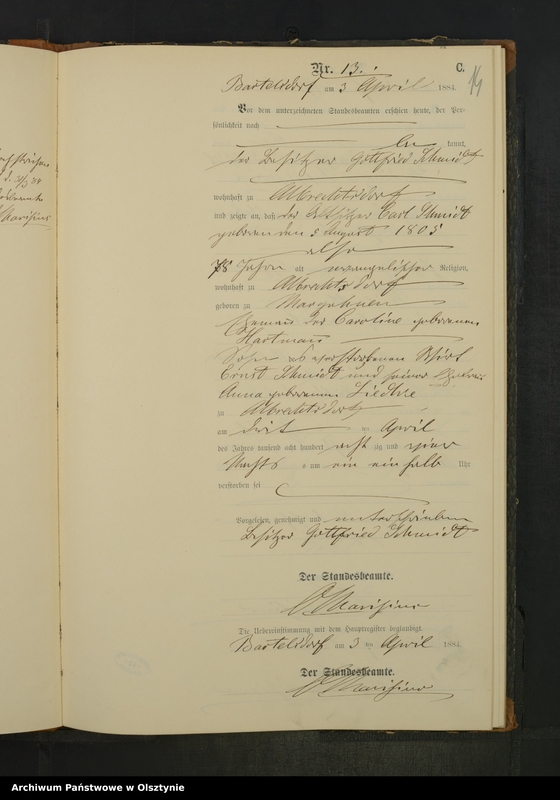 Nr. 13.
C.
14
Bartelsdorf am 3 April 1884.
Vor dem unterzeichneten Standesbeamten erschien heute, der Per-
sönlichkeit nach
kannt,
der Besitzer Gottfried Schmidt
wohnhaft zu Albrechtsdorf
und zeigte an, daß der Altsitzer Carl Schmidt
geboren den 5 August 1805
also
78 Jahre alt evangelischer Religion,
wohnhaft zu Albrechtsdorf
geboren zu
Ehemann der Caroline geborenen
Hartmann
Sohn des verstorbenen Wirt
Ernst Schmidt und seiner Ehefrau
Anna geborenen Liedtke
zu Albrechtsdorf
am drei ten April
des Jahres tausend acht hundert acht zig und vier
Nachts um ein ein halb Uhr
verstorben sei
Vorgelesen, genehmigt und unterschrieben
Besitzer Gottfried Schmidt
Der Standesbeamte.
Die Uebereinstimmung mit dem Hauptregister beglaubigt.
Bartelsdorf am 3 ten April 1884.
Der Standesbeamte.
Archiwum Państwowe w Olsztynie